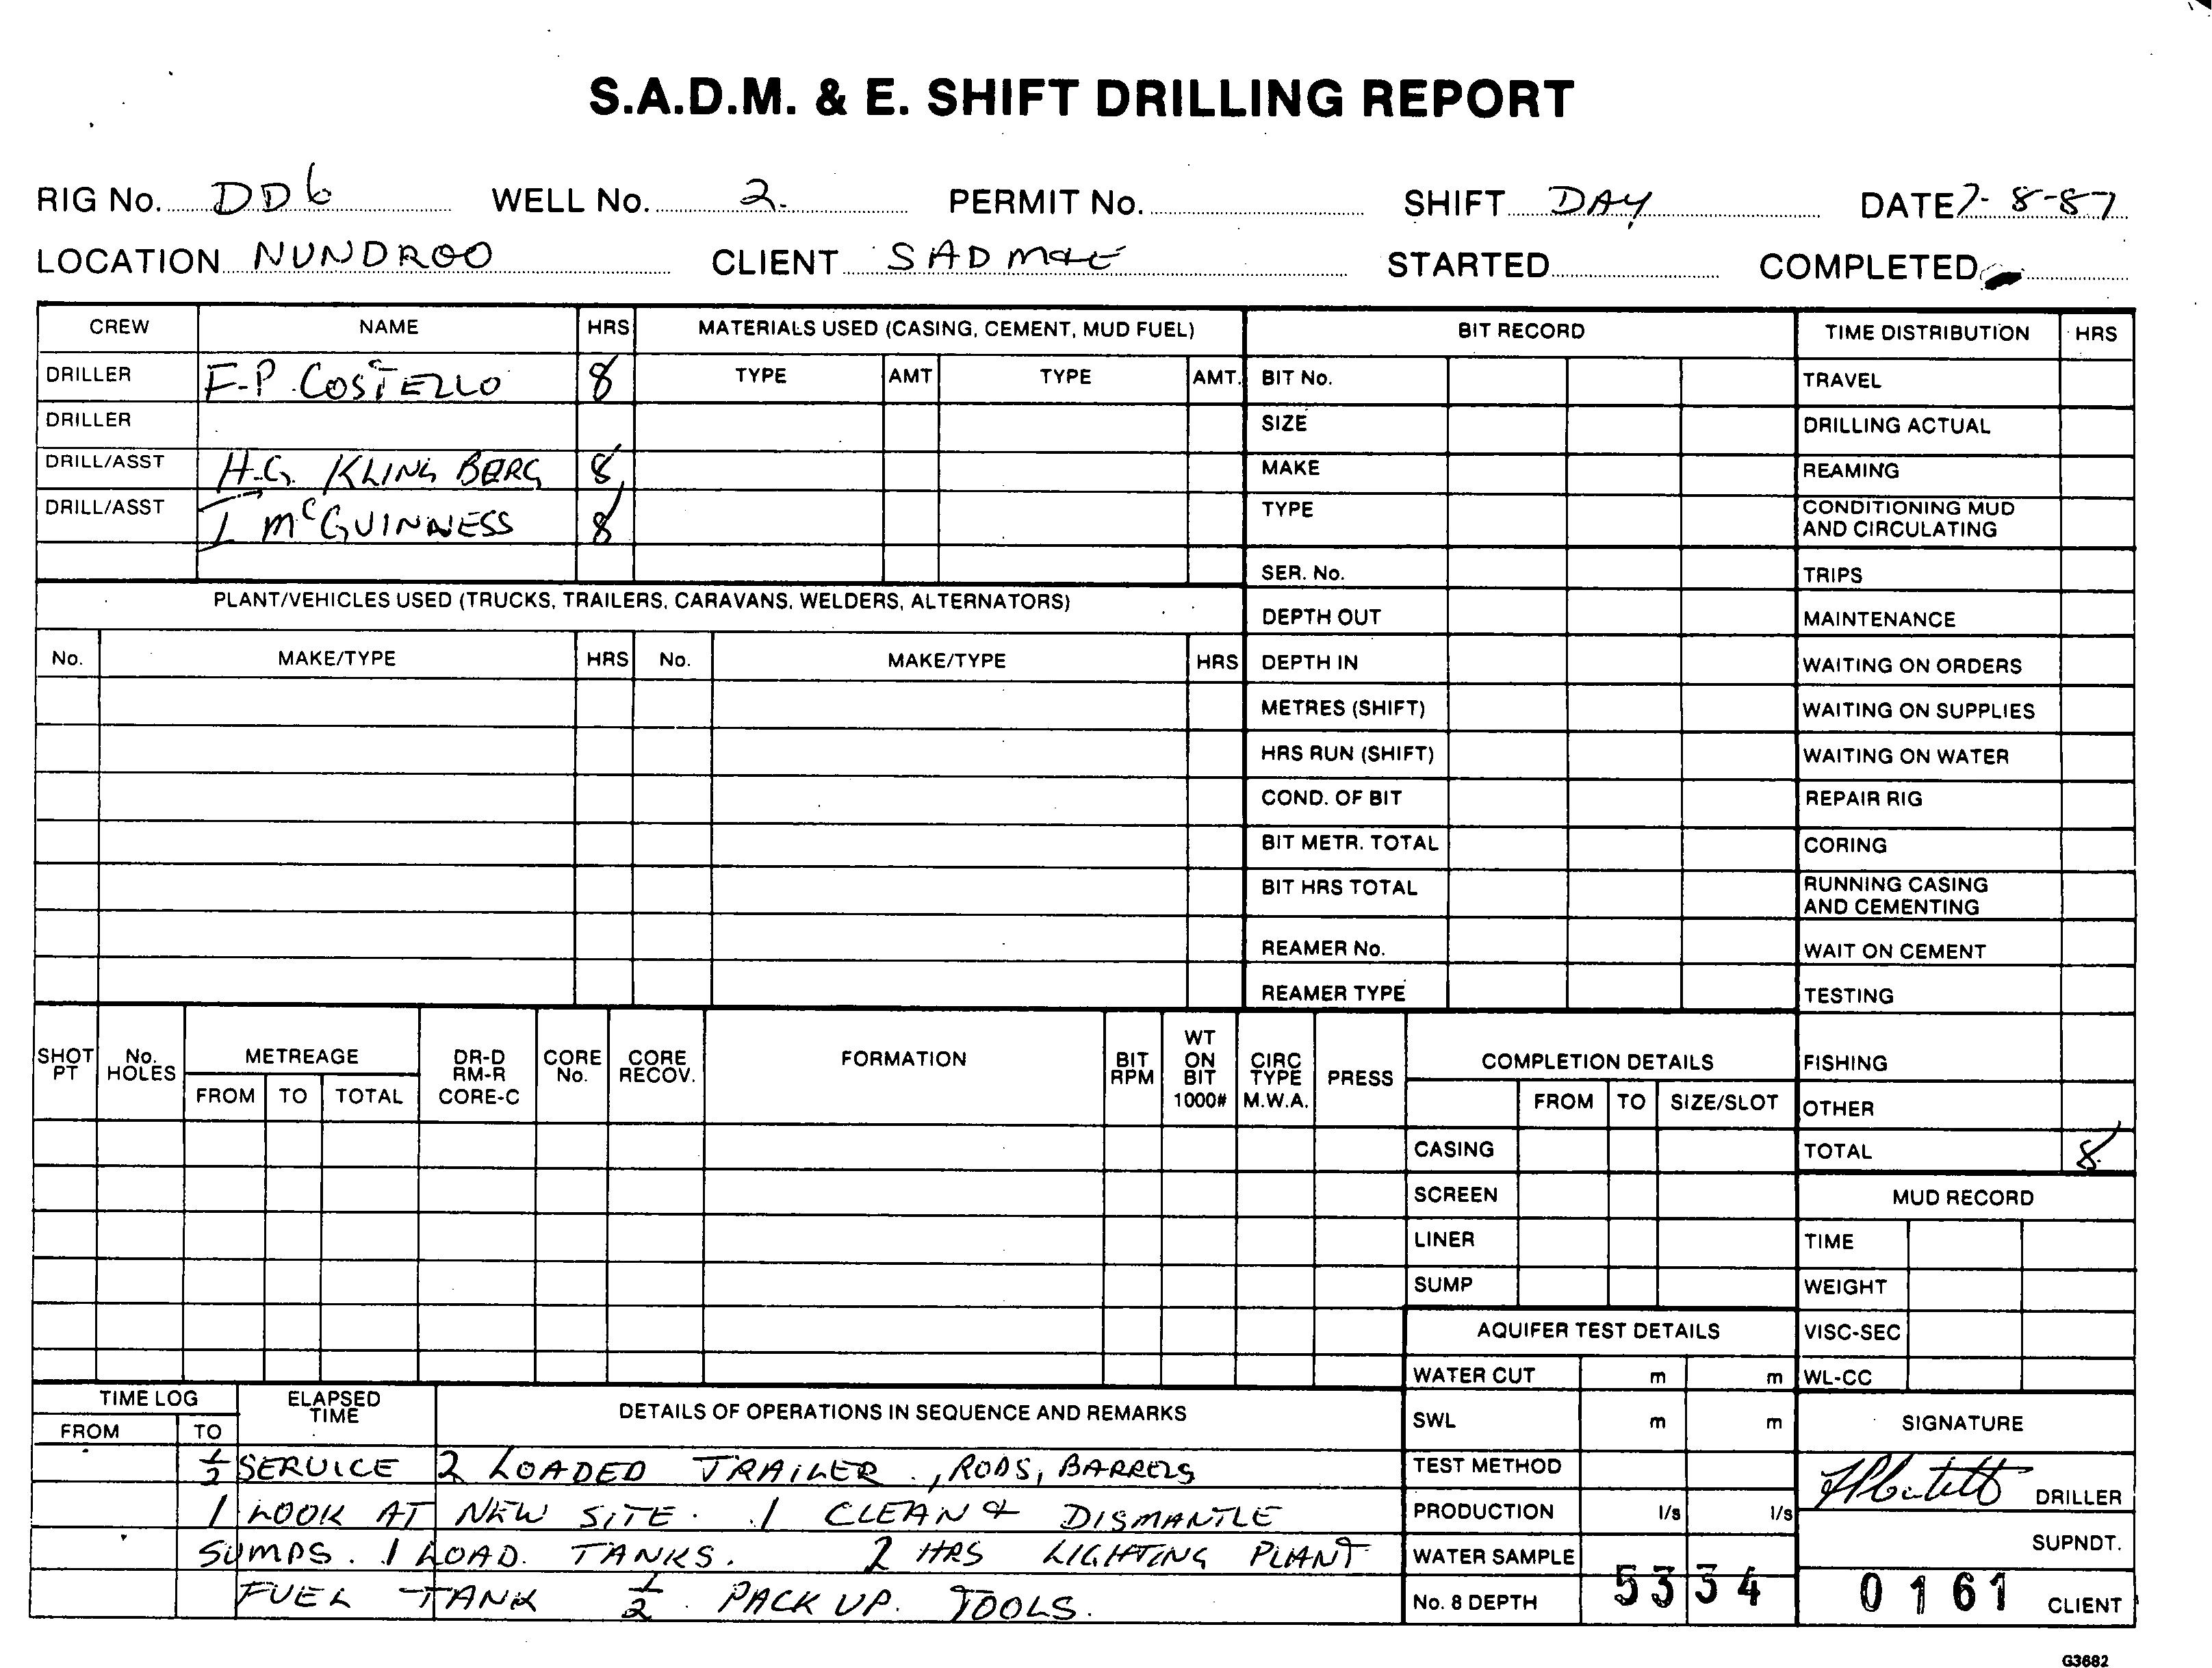 S.A.D.M. & E. SHIFT DRILLING REPORT
RIG No. DD6 WELL No. 2. PERMIT No. SHIFT DAY DATE 7-8-87
LOCATION NUNDROO CLIENT SADM&E STARTED COMPLETED
CREW NAME HRS MATERIALS USED (CASING, CEMENT, MUD FUEL) BIT RECORD TIME DISTRIBUTION HRS
DRILLER F.P. COSTELLO 8 TYPE AMT TYPE AMT. BIT No. TRAVEL
DRILLER SIZE DRILLING ACTUAL
DRILL/ASST H.G. KLINGBERG 8 MAKE REAMING
DRILL/ASST I McGUINNESS 8 TYPE CONDITIONING MUD
AND CIRCULATING
SER. No. TRIPS
PLANT/VEHICLES USED (TRUCKS, TRAILERS, CARAVANS, WELDERS, ALTERNATORS)
DEPTH OUT MAINTENANCE
No. MAKE/TYPE HRS No. MAKE/TYPE HRS DEPTH IN WAITING ON ORDERS
METRES (SHIFT) WAITING ON SUPPLIES
HRS RUN (SHIFT) WAITING ON WATER
COND. OF BIT REPAIR RIG
BIT METR. TOTAL CORING
BIT HRS TOTAL RUNNING CASING
AND CEMENTING
REAMER No. WAIT ON CEMENT
REAMER TYPE TESTING
SHOT PT No. HOLES METREAGE DR-D RM-R CORE-C CORE No. CORE RECOV. FORMATION BIT RPM WT ON BIT 1000# CIRC TYPE M.W.A. PRESS COMPLETION DETAILS FISHING
FROM TO TOTAL FROM TO SIZE/SLOT OTHER
CASING TOTAL 8
SCREEN MUD RECORD
LINER TIME
SUMP WEIGHT
AQUIFER TEST DETAILS VISC-SEC
WATER CUT m m WL-CC
TIME LOG ELAPSED TIME DETAILS OF OPERATIONS IN SEQUENCE AND REMARKS SWL m m SIGNATURE
FROM TO
½ SERVICE 2 LOADED TRAILER, RODS, BARRELS TEST METHOD DRILLER
1 LOOK AT NEW SITE. 1 CLEAN & DISMANTLE PRODUCTION l/s l/s
SUMPS. 1 LOAD. TANKS. 2 HRS LIGHTING PLANT WATER SAMPLE SUPNDT.
FUEL TANK ½ PACK UP. TOOLS. No. 8 DEPTH 5334 0161 CLIENT
G3682